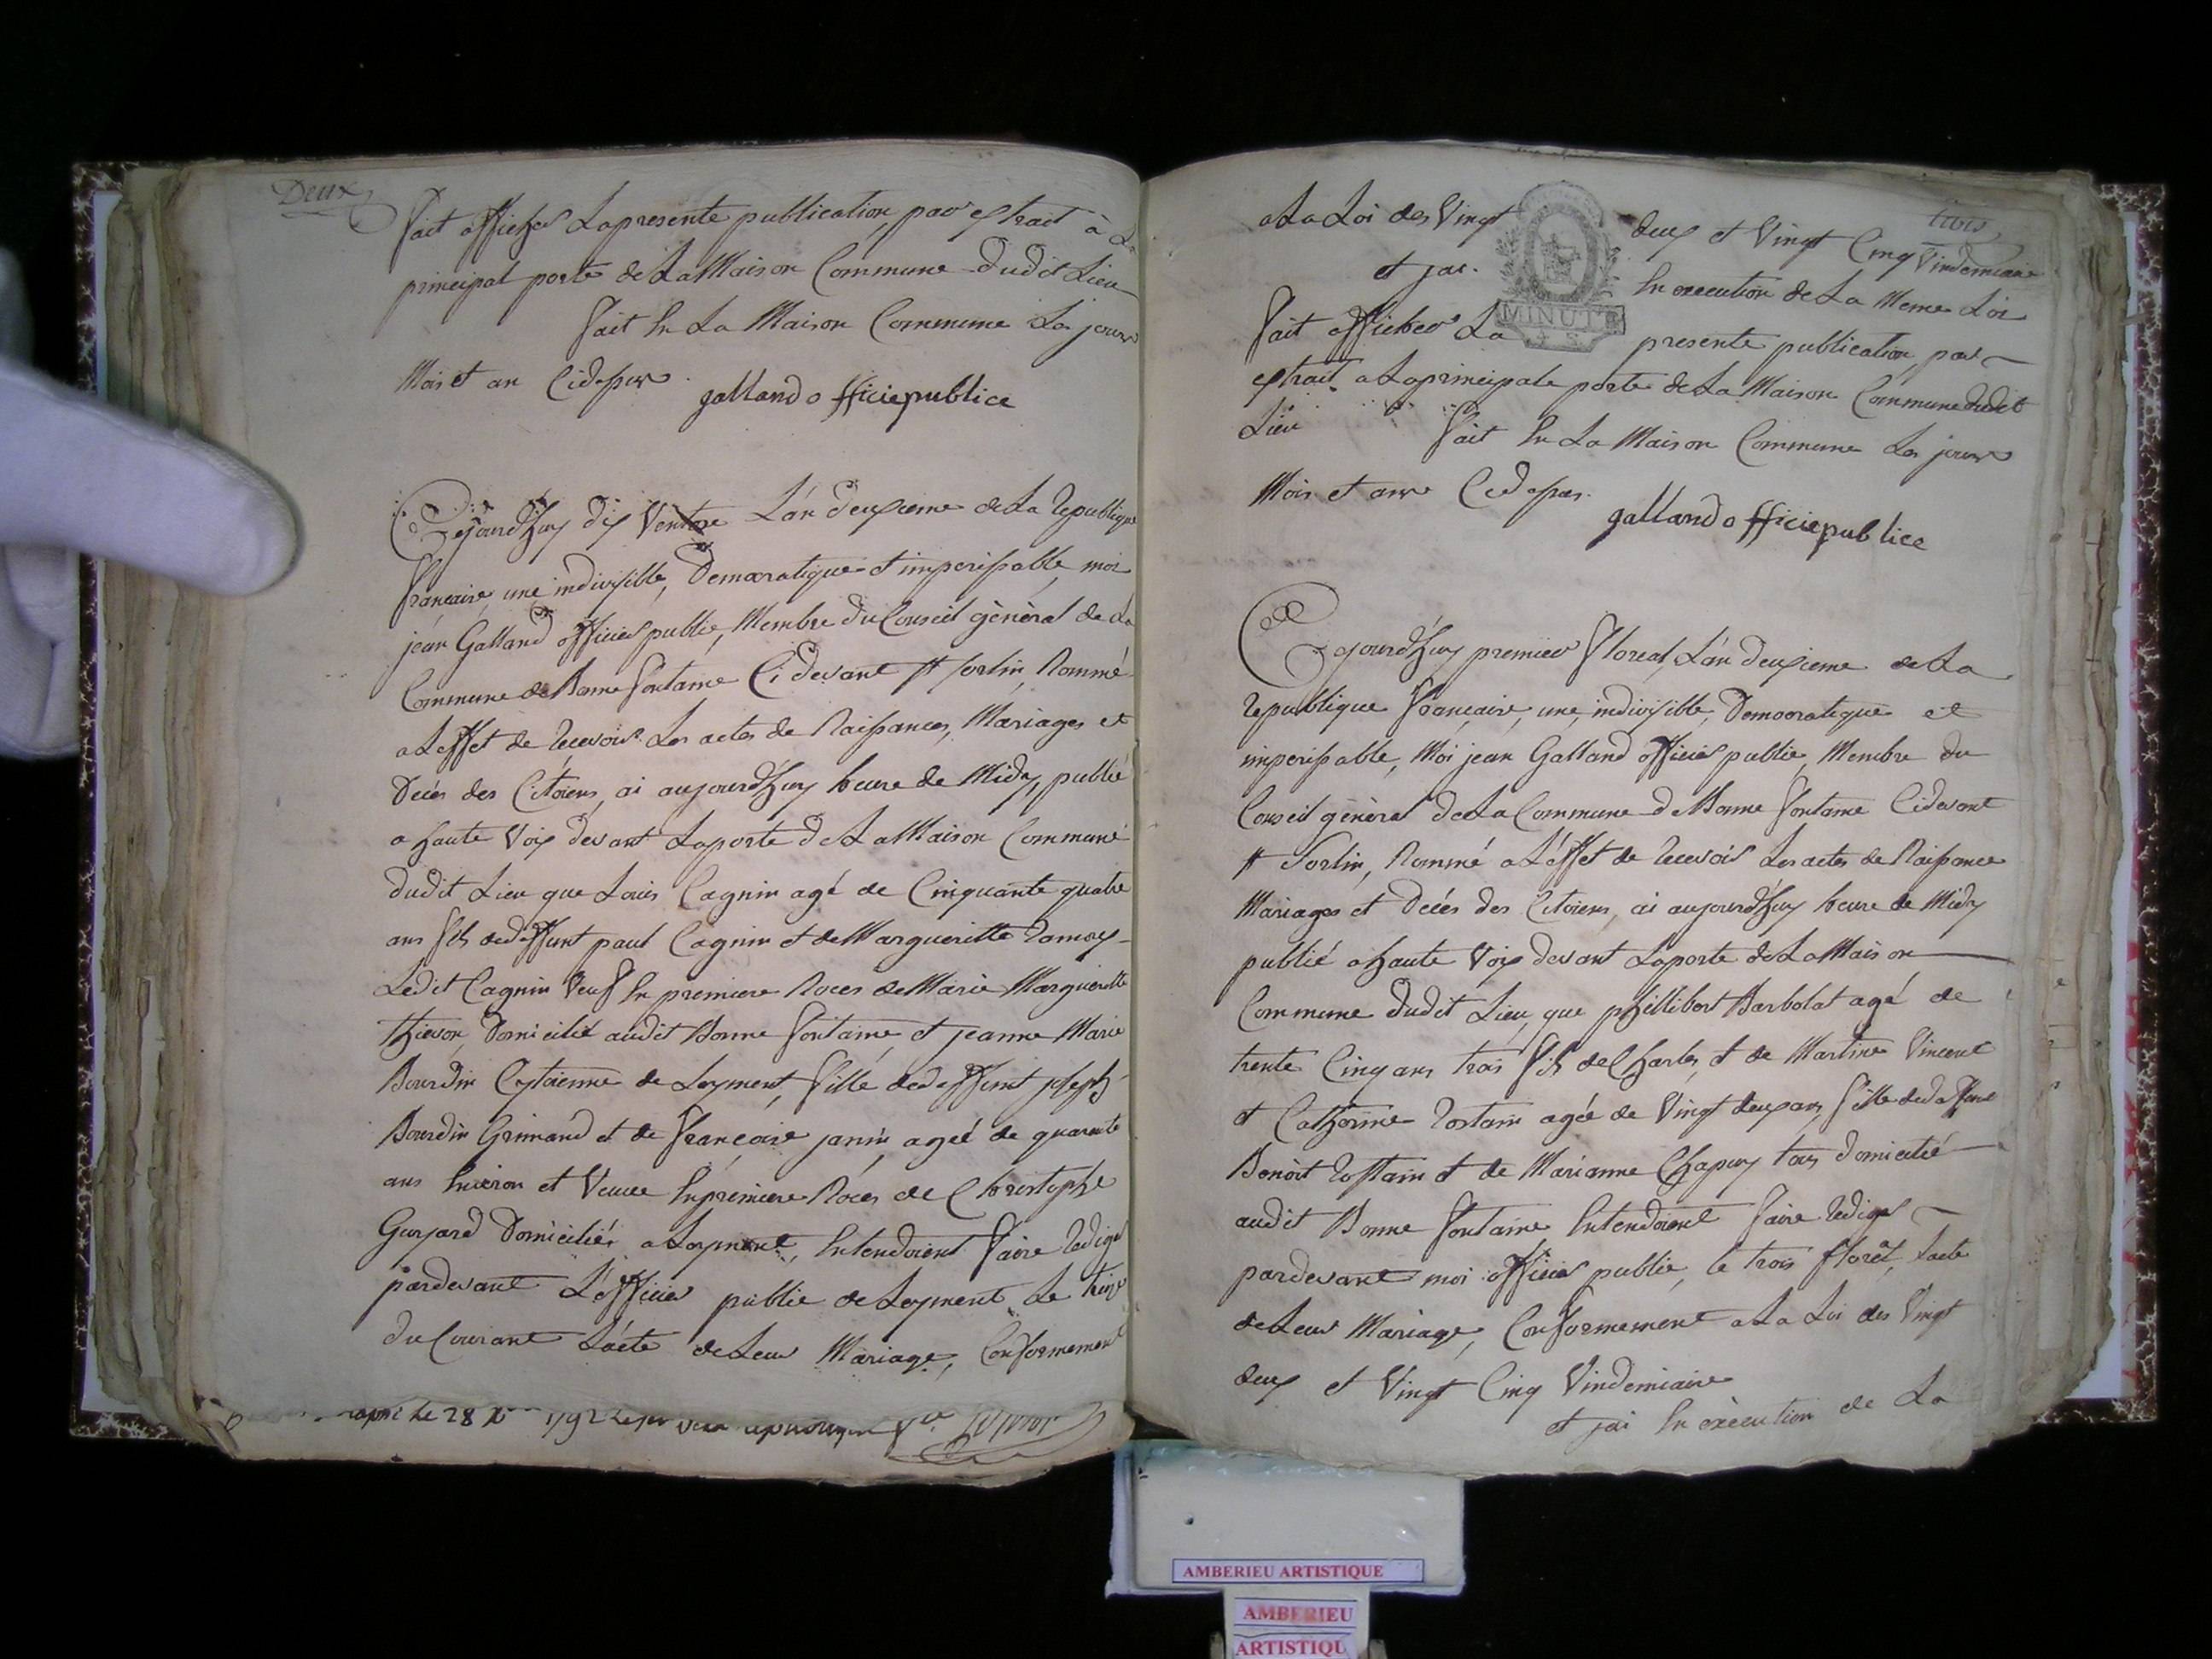 Deux
fait afficher la presente publication, par extrait à la
principal porte de la Maison Commune dudit Lieu
fait en la Maison Commune les jours
Mois et an cidessus.
galland officiepublice
Cejourdhuy dix Ventose L'an deuxieme de la Republique
francaise, une, indivisible, Democratique et imperissable, moi
jean Galland officier public, Membre du Conseil général de la
Commune de Bonne fontaine Cidevant st sorlin, Nommé
a L'effet de recevoir les actes de Naissances, Mariages et
Décés des Citoiens, ai aujourdhuy heure de Midy, publié
a haute Voix devant la porte de la Maison Commune
dudit Lieu que Louis Cagnin agé de Cinquante quatre
ans fils de deffunt paul Cagnin et de Margueritte ramoy
Ledit Cagnin Veuf en premiere Noces de Marie Margueritte
thievon, Domicilié audit Bonne fontaine, et jeanne Marie
Bourdin Cytoienne de Leyment, fille de deffunt joseph
Bourdin Grimand et de françoise janin, ageé de quarante
ans environ et Veuve en premiere Noces de Christophe
Guyard Domiciliés a Leyment, entendoient faire rediger
pardevant L'officier public de Leyment Le treize
du Courant L'acte de Leur Mariage, Conformement
le 28 1792
trois
a la Loi des Vingt deux et Vingt Cinq Vindemiaire
et jai en execution de la Meme Loi
fait afficher la presente publication, par
extrait a la principale porte de la Maison Commune dudit
Lieu fait en la Maison Commune les jours
Mois et ans Cidessus.
MINUTE
galland officiepublice
Cejourdhuy premier floreal, L'an deuxieme de la
republique française, une, indivisible, Democratique et
imperissable, Moi jean Galland officier public, Membre du
Conseil général de la Commune de Bonne fontaine Cidevant
st Sorlin, Nommé a L'effet de recevoir les actes de Naissance
Mariages et Décés des Citoiens, ai aujourdhuy heure de Midy
publié a haute Voix devant la porte de la Maison
Commune dudit Lieu, que phillibert Barbolat agé de
trente Cinq ans trois fils de Charles, et de Martine Vincent
et Catherine rostain agée de Vingt deux ans, fille de deffunt
Benoit rostain et de Marianne Chapuy tous domicilié
audit Bonne fontaine entendoient faire rediger
pardevant moi officier public, le trois floreal, l'acte
de Leur Mariage, Conformement a la Loi des Vingt
deux et Vingt Cinq Vindemiaire
et jai en exécution de la
AMBERIEU ARTISTIQUE
AMBERIEU
ARTISTIQU